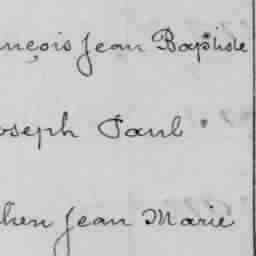 nçois Jean Baptiste
oseph Paul
hen Jean Marie